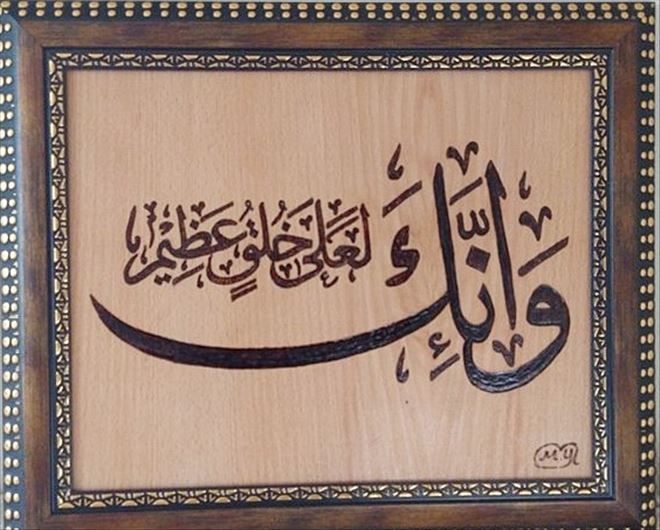 وَإِنَّكَ لَعَلَىٰ خُلُقٍ عَظِيمٍ
M.Y